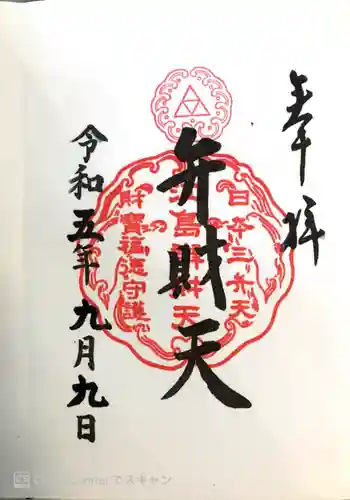 奉拝
日本三弁天
江島弁財天
財寶福徳守護
弁財天
令和五年九月九日
でスキャン